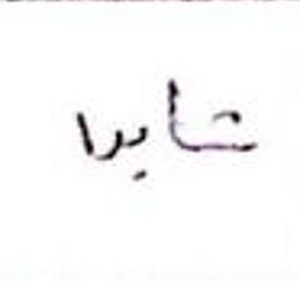 شابدا